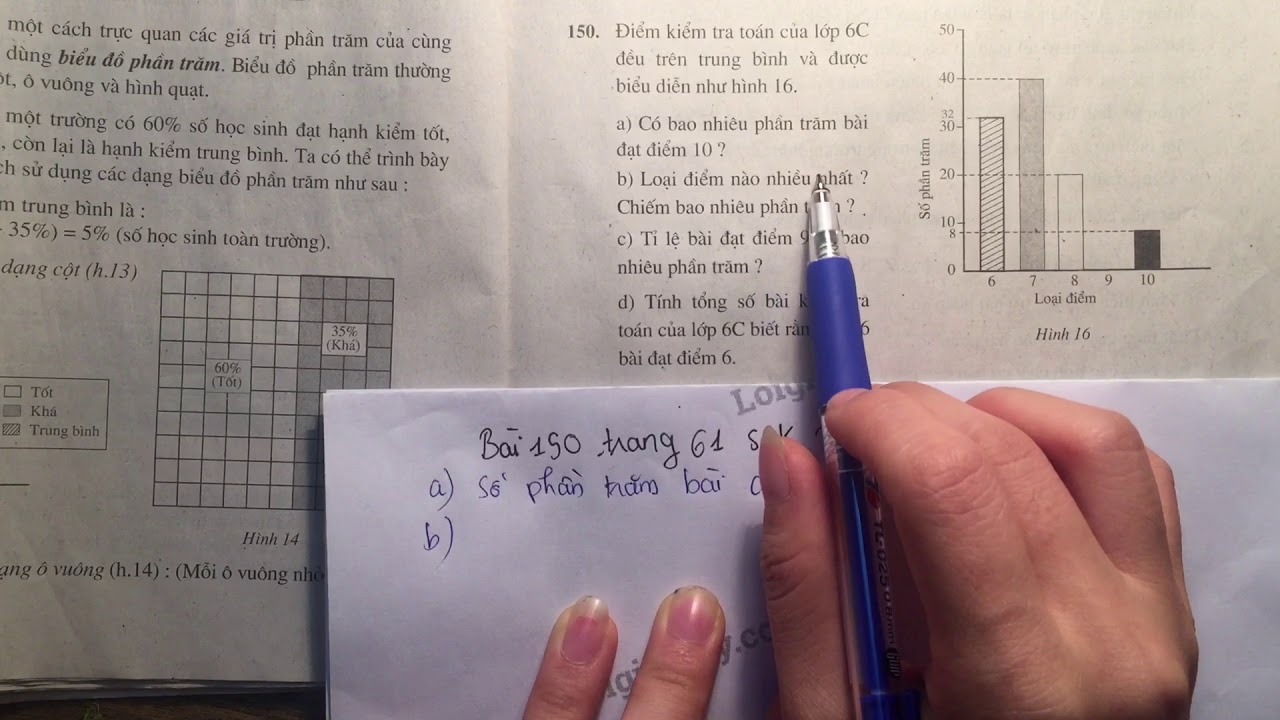 một cách trực quan các giá trị phần trăm của cùng
dùng biểu đồ phần trăm. Biểu đồ phần trăm thường
ột, ô vuông và hình quạt.
một trường có 60% số học sinh đạt hạnh kiểm tốt,
, còn lại là hạnh kiểm trung bình. Ta có thể trình bày
ch sử dụng các dạng biểu đồ phần trăm như sau :
m trung bình là :
35%) = 5% (số học sinh toàn trường).
dạng cột (h.13)
35%
(Khá)
60%
(Tốt)
Tốt
Khá
Trung bình
Hình 14
ạng ô vuông (h.14) : (Mỗi ô vuông nhỏ
150. Điểm kiểm tra toán của lớp 6C
đều trên trung bình và được
biểu diễn như hình 16.
a) Có bao nhiêu phần trăm bài
đạt điểm 10 ?
b) Loại điểm nào nhiều nhất ?
Chiếm bao nhiêu phần ?
c) Tỉ lệ bài đạt điểm 9 bao
nhiêu phần trăm ?
d) Tính tổng số bài ra
toán của lớp 6C biết 6
bài đạt điểm 6.
Số phần trăm
50
40
32
30
20
10
8
0
6 7 8 9 10
Loại điểm
Hình 16
Bài 150 trang 61
a) Số phần trăm bài
b)